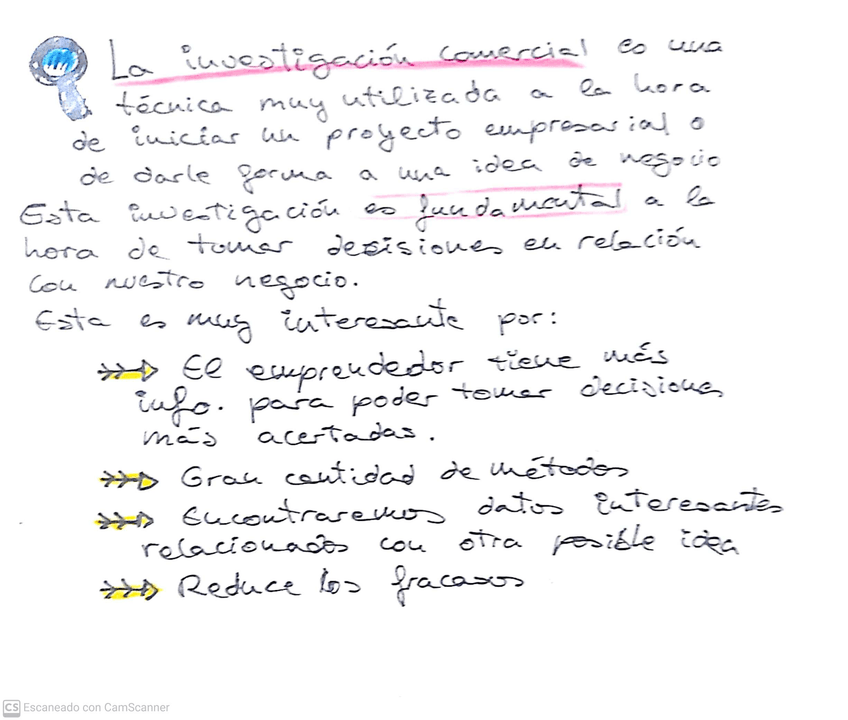 La investigación comercial es una
técnica muy utilizada a la hora
de iniciar un proyecto empresarial o
de darle forma a una idea de negocio
Esta investigación es fundamental a la
hora de tomar decisiones en relación
con nuestro negocio.
Esta es muy interesante por:
El emprendedor tiene más
info. para poder tomar decisiones
más acertadas.
Gran cantidad de métodos
Encontraremos datos interesantes
relacionados con otra posible idea
Reduce los fracasos
CS Escaneado con CamScanner